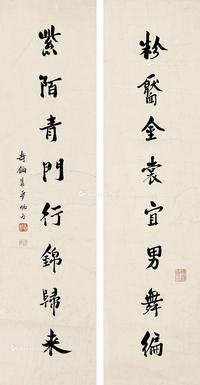 粉黡金裳宜男舞徧
紫陌青門行錦歸来